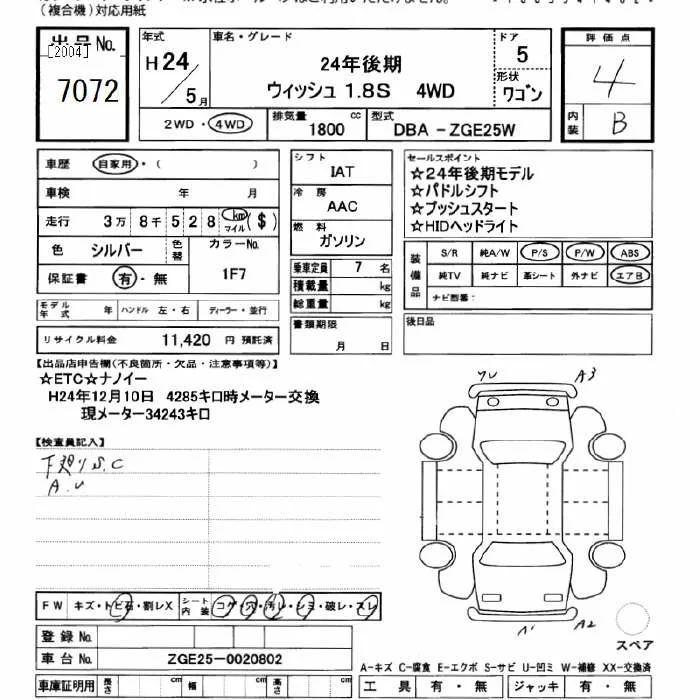 (複合機)対応用紙
出品No.
[2004]
7072
年式
H24/5月
車名・グレード
24年後期
ウィッシュ 1.8S 4WD
ドア
5
形状
ワゴン
評価点
4
内装
B
2WD・4WD
排気量 1800 cc
型式 DBA-ZGE25W
車歴 自家用・( )
車検 年 月
走行 3万 8千 5 2 8 km マイル ($)
色 シルバー 色替 カラーNo. 1F7
保証書 有・無
シフト
IAT
冷房
AAC
燃料
ガソリン
乗車定員 7 名
積載量 kg
総重量 kg
書類期限
月 日
セールスポイント
☆24年後期モデル
☆パドルシフト
☆プッシュスタート
☆HIDヘッドライト
装備品
S/R 純A/W P/S P/W ABS
純TV 純ナビ 革シート 外ナビ エアB
ナビ型番:
後日品
モデル年式 年 ハンドル 左・右 ディーラー・並行
リサイクル料金 11,420 円 預託済
【出品店申告欄(不良箇所・欠品・注意事項等)】
☆ETC☆ナノイー
H24年12月10日 4285キロ時メーター交換
現メーター34243キロ
【検査員記入】
下廻りS.C
A.U
A3
A1
A2
スペア
FW キズ・トビ石・割レX シート内装 コゲ・穴・汚レ・シミ・破レ・スレ
登録No.
車台No. ZGE25-0020802
車庫証明用 長さ cm 幅 cm 高さ cm
A-キズ C-腐食 E-エクボ S-サビ U-凹ミ W-補修 XX-交換済
工具 有・無 ジャッキ 有・無